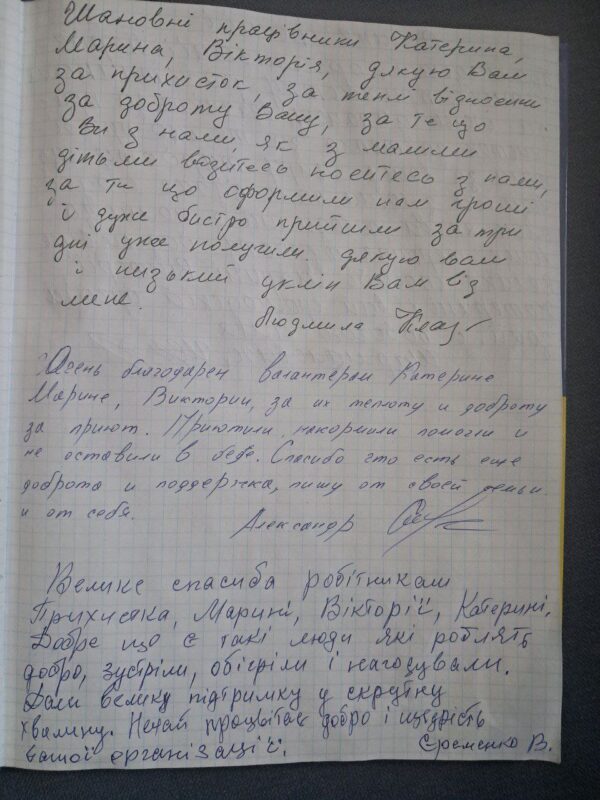 Шановні працівники Катерина,
Марина, Вікторія, дякую Вам
за прихисток, за теплі відносини
за доброту Вашу, за те що
Ви з нами, як з малими
дітьми возитесь носитесь з нами,
за те що оформили нам гроші
і дуже бистро прийшли за три
дні уже получили. дякую вам
і низький уклін Вам від
мене.
Людмила
Очень благодарен валантерам Катерине
Марине, Виктории, за их теплоту и доброту
за приют. Приютили, накормили помогли и
не оставили в беде. Спасибо что есть еще
доброта и поддержка, пишу от своей семьи
и от себя.
Александр
Велике спасиба робітникам
Прихистка, Марині, Вікторії, Катерині.
Добре що є такі люди які роблять
добро, зустріли, обігріли і нагодували.
Дали велику підтримку у скрутну
хвилину. Нехай процвітає добро і щедрість
вашої організації.
Єременко В.